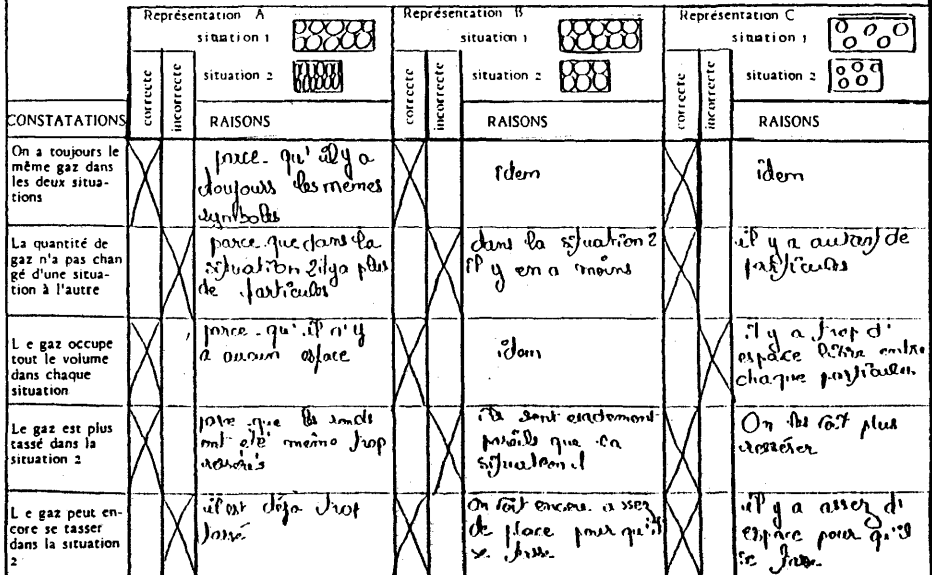 Représentation A
situation 1
situation 2
Représentation B
situation 1
situation 2
Représentation C
situation 1
situation 2
CONSTATATIONS
correcte
incorrecte
RAISONS
correcte
incorrecte
RAISONS
correcte
incorrecte
RAISONS
On a toujours le
même gaz dans
les deux situa-
tions
parce-qu'il y a
toujours les memes
symboles
idem
idem
La quantité de
gaz n'a pas chan
gé d'une situa-
tion à l'autre
parce que dans la
situation 2 il y a plus
de particules
dans la situation 2
il y en a moins
il y a autant de
particules
L e gaz occupe
tout le volume
dans chaque
situation
parce-qu'il n'y
a aucun espace
idem
il y a trop d'
espace libre entre
chaque particules
Le gaz est plus
tassé dans la
situation 2
parce que les ronds
ont été même trop
resserrés
ils sont exactement
pareils que la
situation 1
On les voit plus
resserrer
L e gaz peut en-
core se tasser
dans la situation
2
il est déjà trop
tassé
On voit encore assez
de place pour qu'il
se tasse
il y a assez d'
espace pour qu'il
se tasse